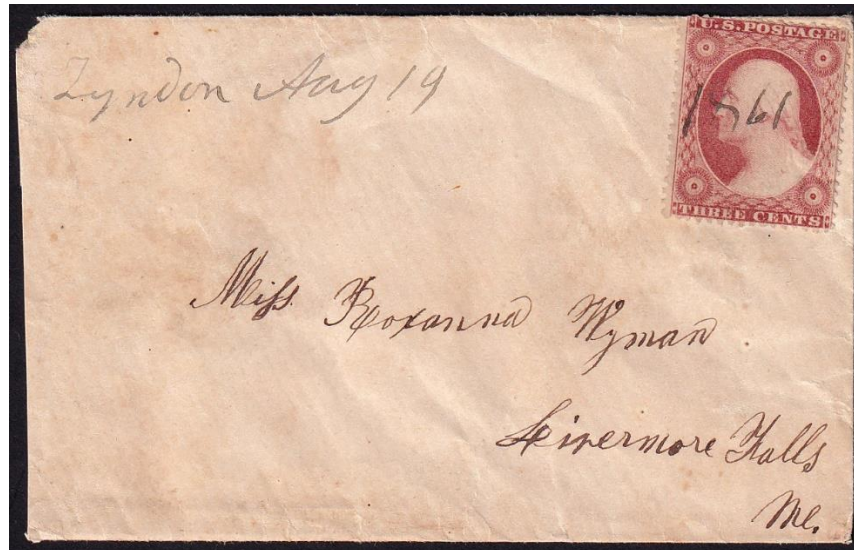 Lyndon Aug 19
U.S. POSTAGE
1861
THREE CENTS
Miss. Roxanna Wyman
Livermore Falls
Me.